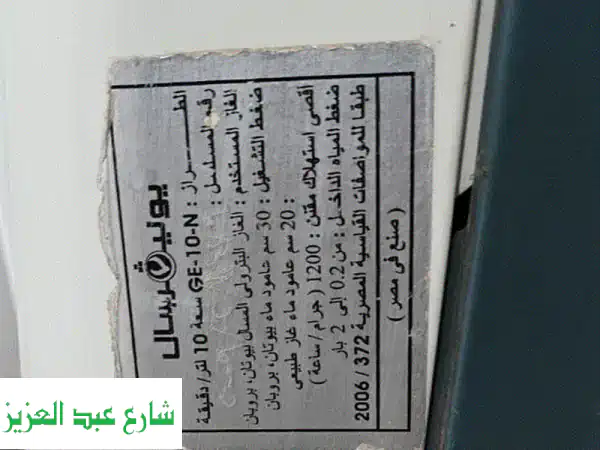 يونيفرسال
الطــــراز : GE-10-N سعة 10 لتر/دقيقة
رقم المسلسل :
الغاز المستخدم : الغاز البترولى المسال بيوتان، بروبان
ضغط التشغيل : 30 سم عامود ماء بيوتان، بروبان
: 20 سم عامود ماء غاز طبيعى
اقصى استهلاك مقنن : 1200 ( جرام / ساعة )
ضغط المياه الداخل : من 0.2 إلى 2 بار
طبقا للمواصفات القياسية المصرية 372 / 2006
( صنع فى مصر )
شارع عبد العزيز